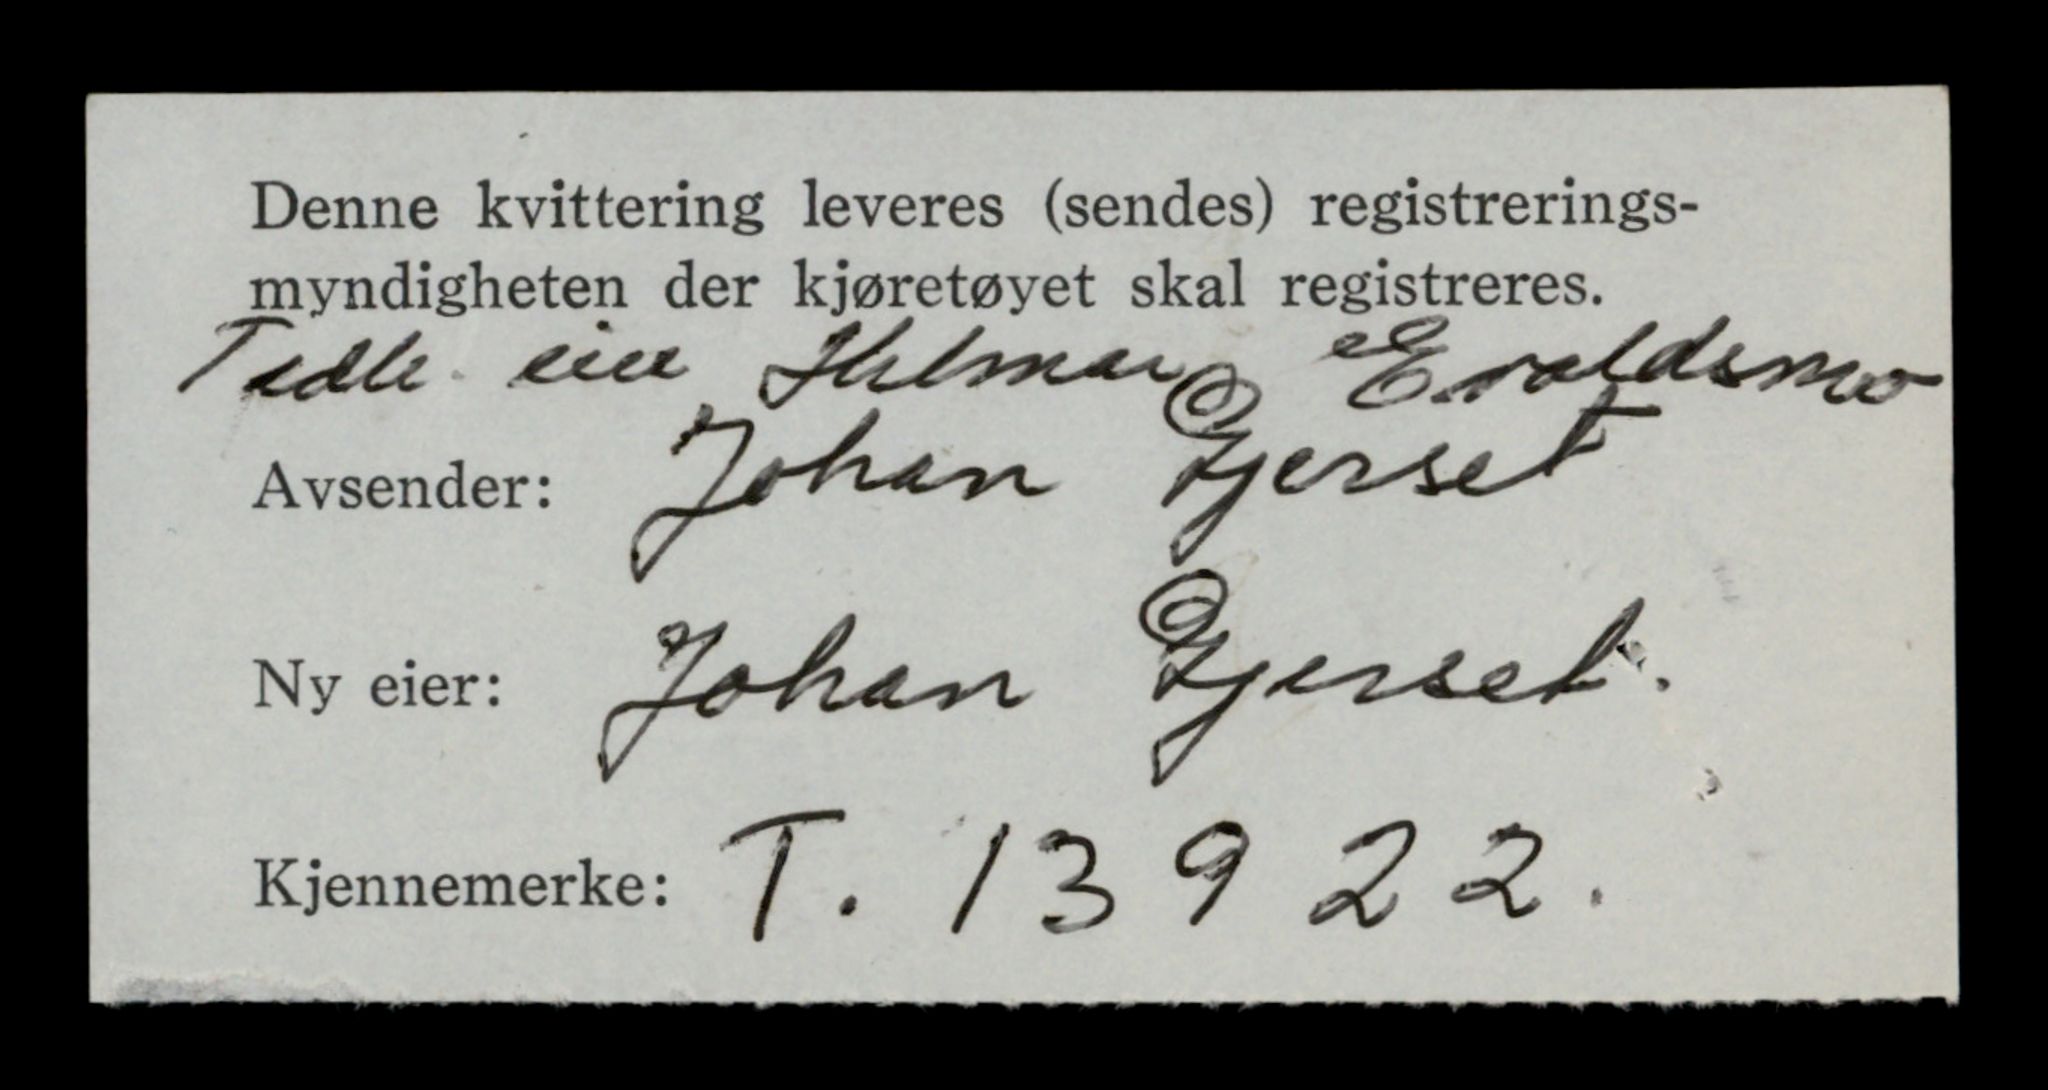 Denne kvittering leveres (sendes) registrerings-
myndigheten der kjøretøyet skal registreres.
Tidl. eier Hilmar Evaldsmo
Avsender: Johan Gjerset
Ny eier: Johan Gjerset.
Kjennemerke: T. 13922.